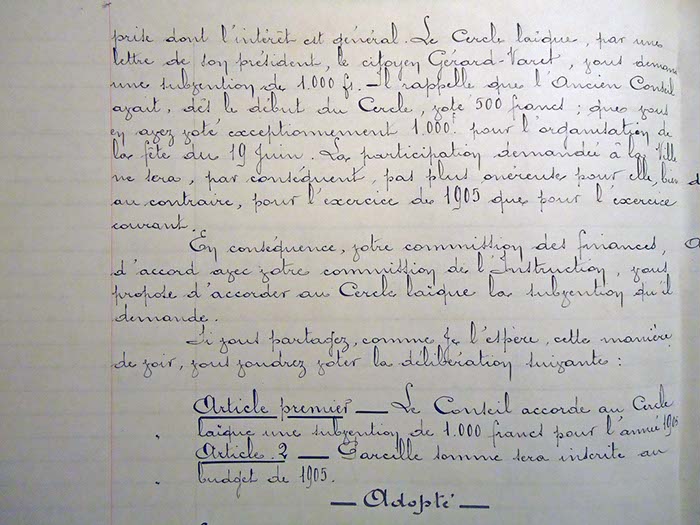 prise dont l'intérêt est général. Le Cercle laïque, par une
lettre de son président, le citoyen Gérard-Varet, vous deman
une subvention de 1.000 fs. - Il rappelle que l'Ancien Conseil
avait, dès le début du Cercle, voté 500 francs ; que vous
en avez voté exceptionnement 1.000f pour l'organisation de
la fête du 19 Juin. La participation demandée à la Ville
ne sera, par conséquent, pas plus onéreuse pour elle, bien
au contraire, pour l'exercice de 1905 que pour l'exercice
courant.
En conséquence, votre commission des finances,
d'accord avec votre commission de l'Instruction, vous
propose d'accorder au Cercle laïque la subvention qu'il
demande.
Si vous partagez, comme je l'espère, cette manière
de voir, vous voudrez voter la délibération suivante :
Article premier — Le Conseil accorde au Cercle
laïque une subvention de 1.000 francs pour l'année 1905
Article 2 — Pareille somme sera inscrite au
budget de 1905.
— Adopté —